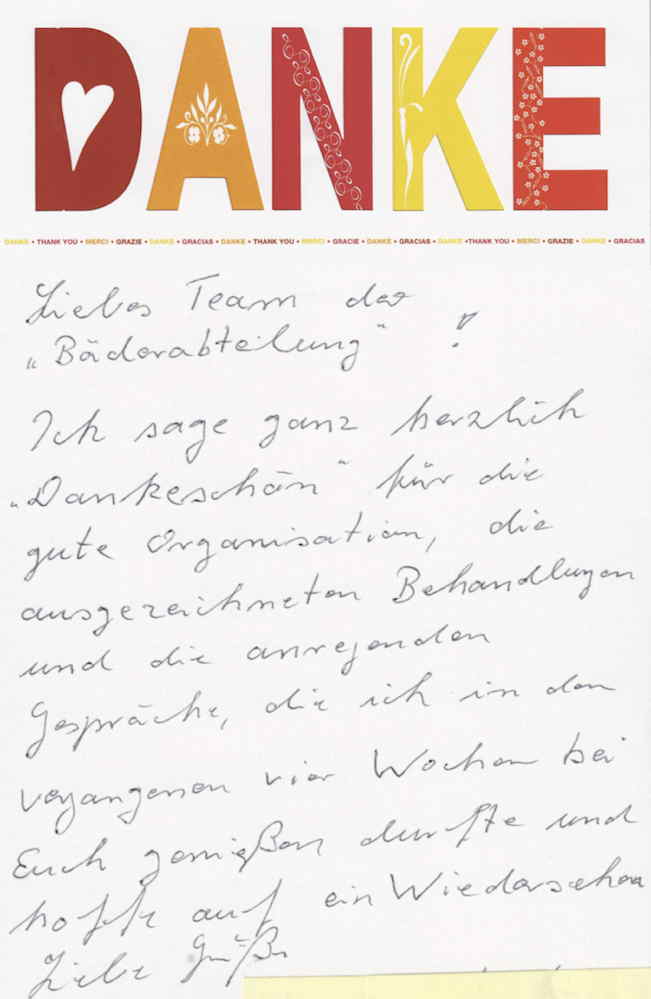 DANKE
DANKE • THANK YOU • MERCI • GRAZIE • DANKE • GRACIAS • DANKE • THANK YOU • MERCI • GRACIE • DANKE • GRACIAS • DANKE •THANK YOU • MERCI • GRAZIE • DANKE • GRACIAS
Liebes Team der
„Bäderabteilung" !
Ich sage ganz herzlich
„Dankeschön" für die
gute Organisation, die
ausgezeichneten Behandlungen
und die anregenden
Gespräche, die ich in den
vergangenen vier Wochen bei
Euch genießen durfte und
hoffe auf ein Wiedersehen
Liebe Grüße